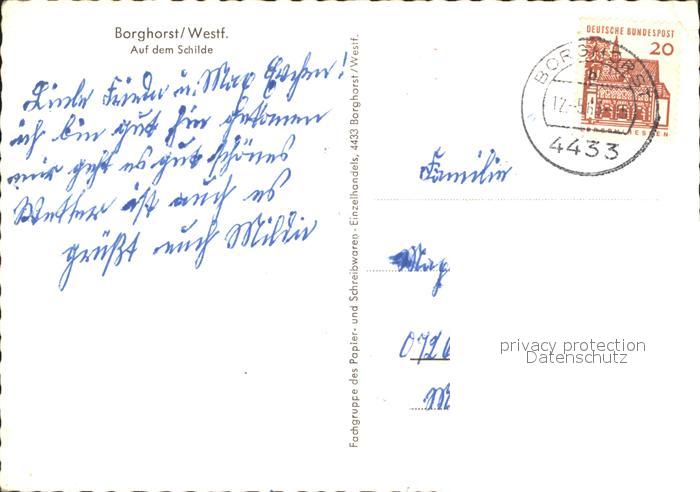 Borghorst/Westf.
Auf dem Schilde
Liebe Frieda u. Max
ich bin gut hin gekomen
mir geht es gut schönes
Wetter ist auch es
grüßt euch
Fachgruppe des Papier- und Schreibwaren-Einzelhandels, 4433 Borghorst/Westf.
DEUTSCHE BUNDESPOST
20
BORGHORST
4433
Familie
Max
privacy protection
Datenschutz
M